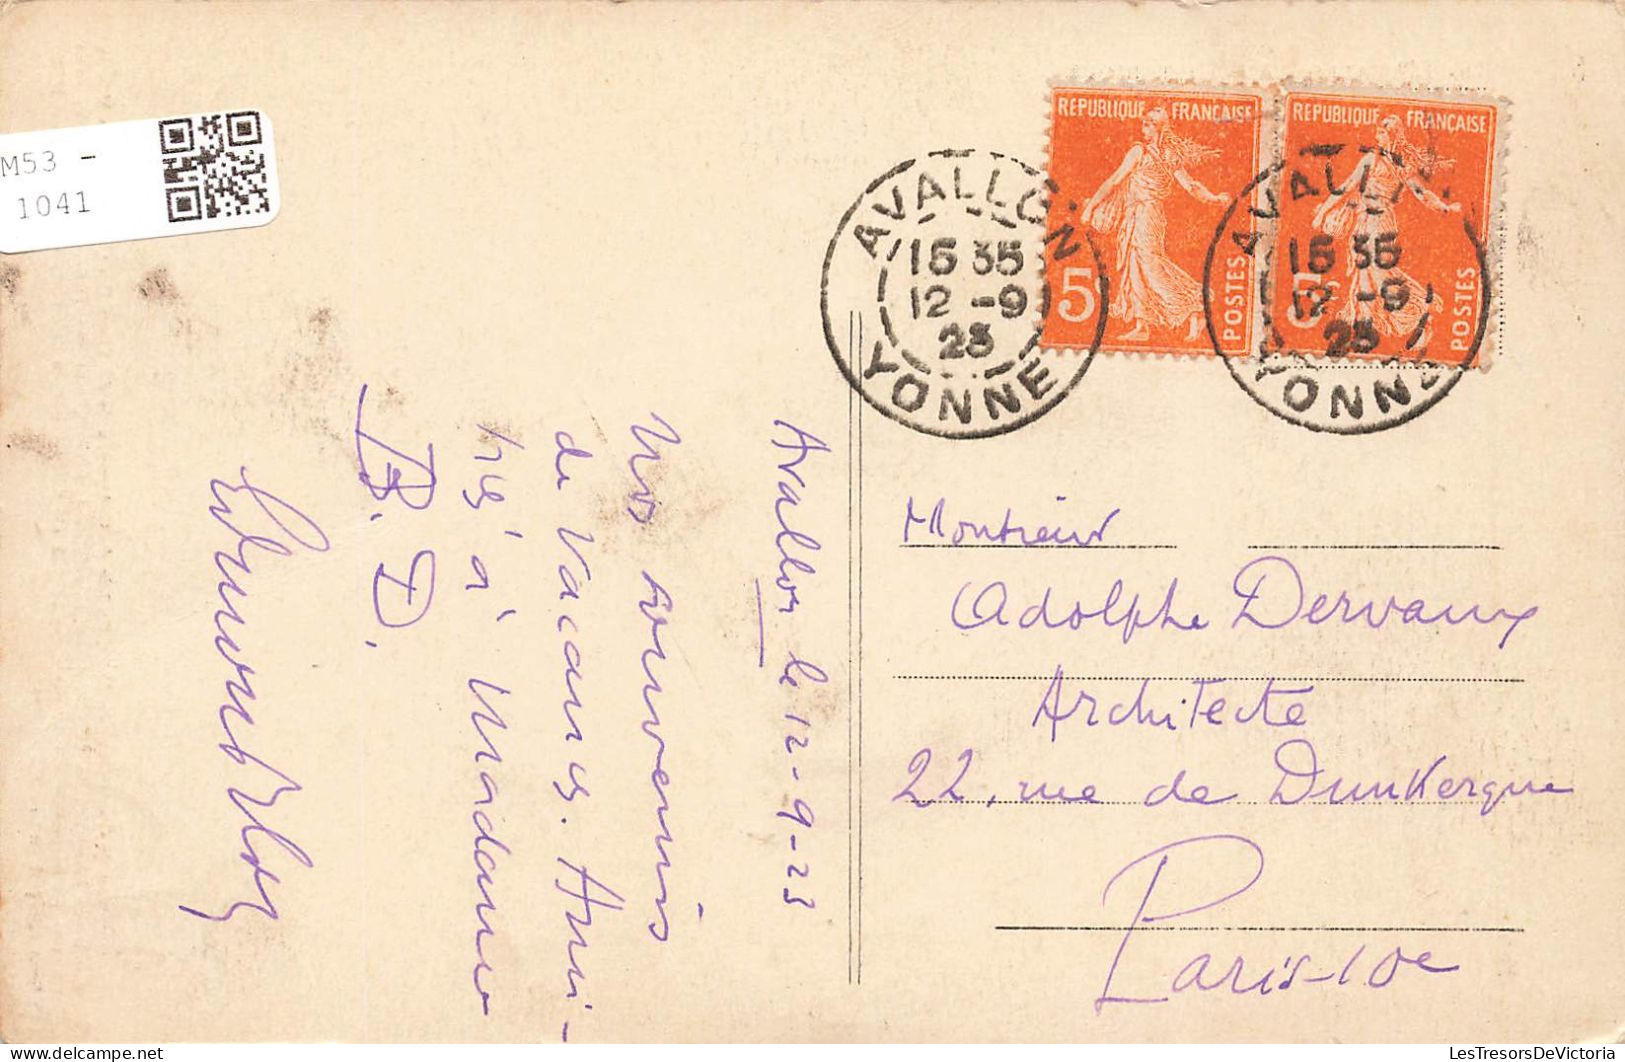 M53 -
1041
REPUBLIQUE FRANÇAISE
5
POSTES
REPUBLIQUE FRANÇAISE
5
POSTES
AVALLON
15 35
12 -9
23
YONNE
AVALLON
15 35
12 -9
23
YONNE
Avallon le 12-9-23
Nos souvenirs
de Vacances. Ami-
tiés à Madame
B. D.
Monsieur
Adolphe Dervaux
Architecte
22, rue de Dunkerque
Paris-10e
LesTresorsDeVictoria